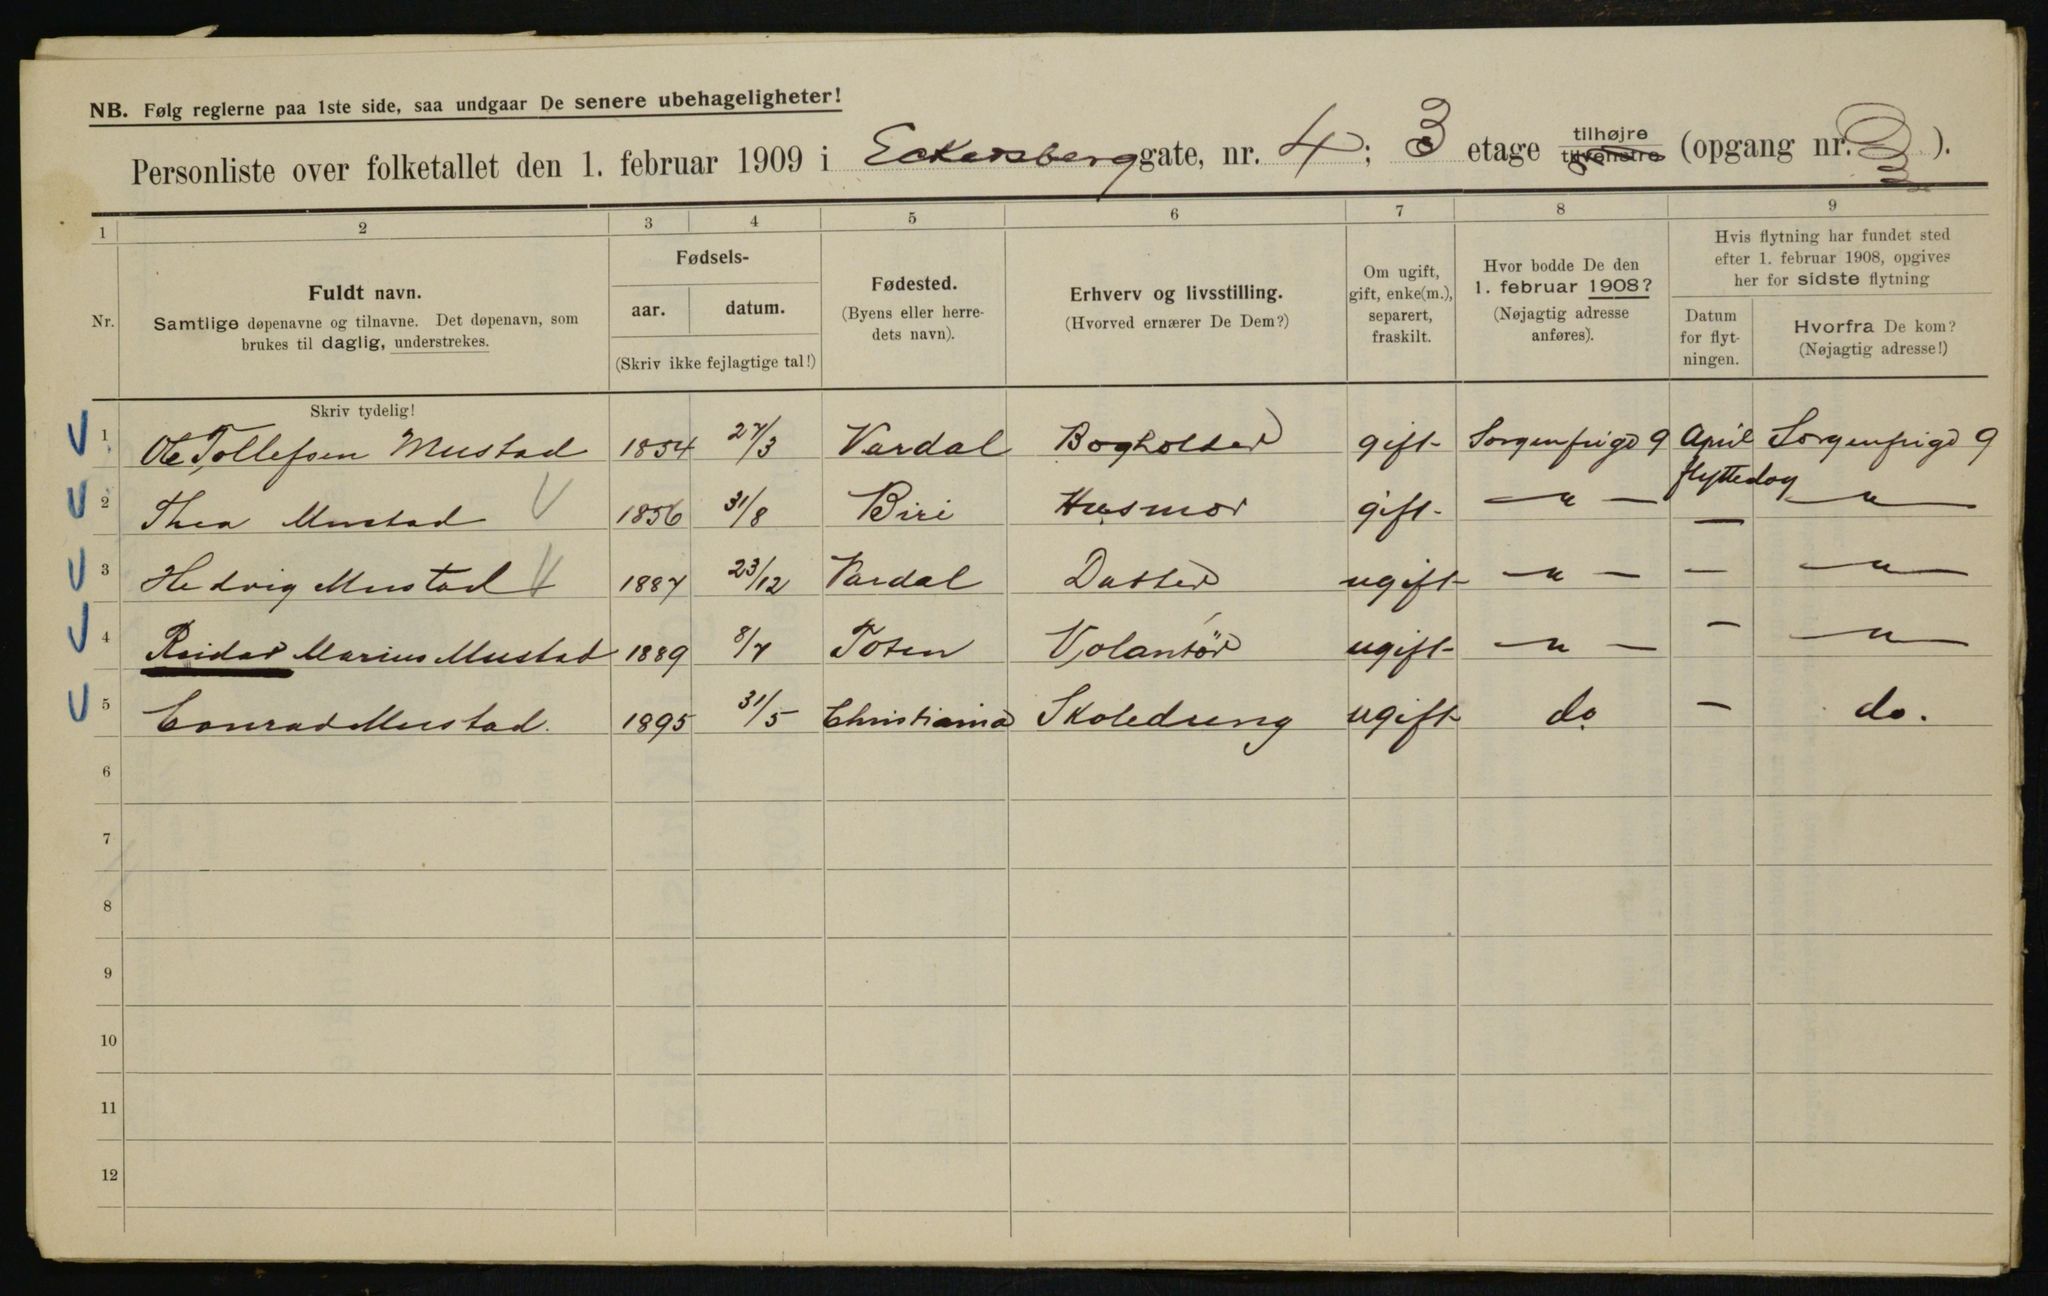 NB. Følg reglerne paa 1ste side, saa undgaar De senere ubehageligheter!
Personliste over folketallet den 1. februar 1909 i Eckersberggate, nr. 4; 3 etage tilhøjre tilvenstre (opgang nr. ).
1 2 3 4 5 6 7 8 9
Nr.
Fuldt navn.
Samtlige døpenavne og tilnavne. Det døpenavn, som
brukes til daglig, understrekes.
Fødsels-
aar. datum.
(Skriv ikke fejlagtige tal!)
Fødested.
(Byens eller herre-
dets navn).
Erhverv og livsstilling.
(Hvorved ernærer De Dem?)
Om ugift,
gift, enke(m.),
separert,
fraskilt.
Hvor bodde De den
1. februar 1908?
(Nøjagtig adresse
anføres).
Hvis flytning har fundet sted
efter 1. februar 1908, opgives
her for sidste flytning
Datum
for flyt-
ningen.
Hvorfra De kom?
(Nøjagtig adresse!)
Skriv tydelig!
1 Ole Tollefsen Mustad 1854 27/3 Vardal Bogholder gift Sorgenfrigd 9 April flyttedag Sorgenfrigd 9
2 Thea Mustad 1856 31/8 Biri Husmor gift — " — — — " —
3 Hedvig Mustad 1887 23/12 Vardal Datter ugift — " — — — " —
4 Reidar Marius Mustad 1889 8/7 Toten Volantør ugift — " — — — " —
5 Conrad Mustad. 1895 31/5 Christiania Skoledreng ugift do — do.
6
7
8
9
10
11
12